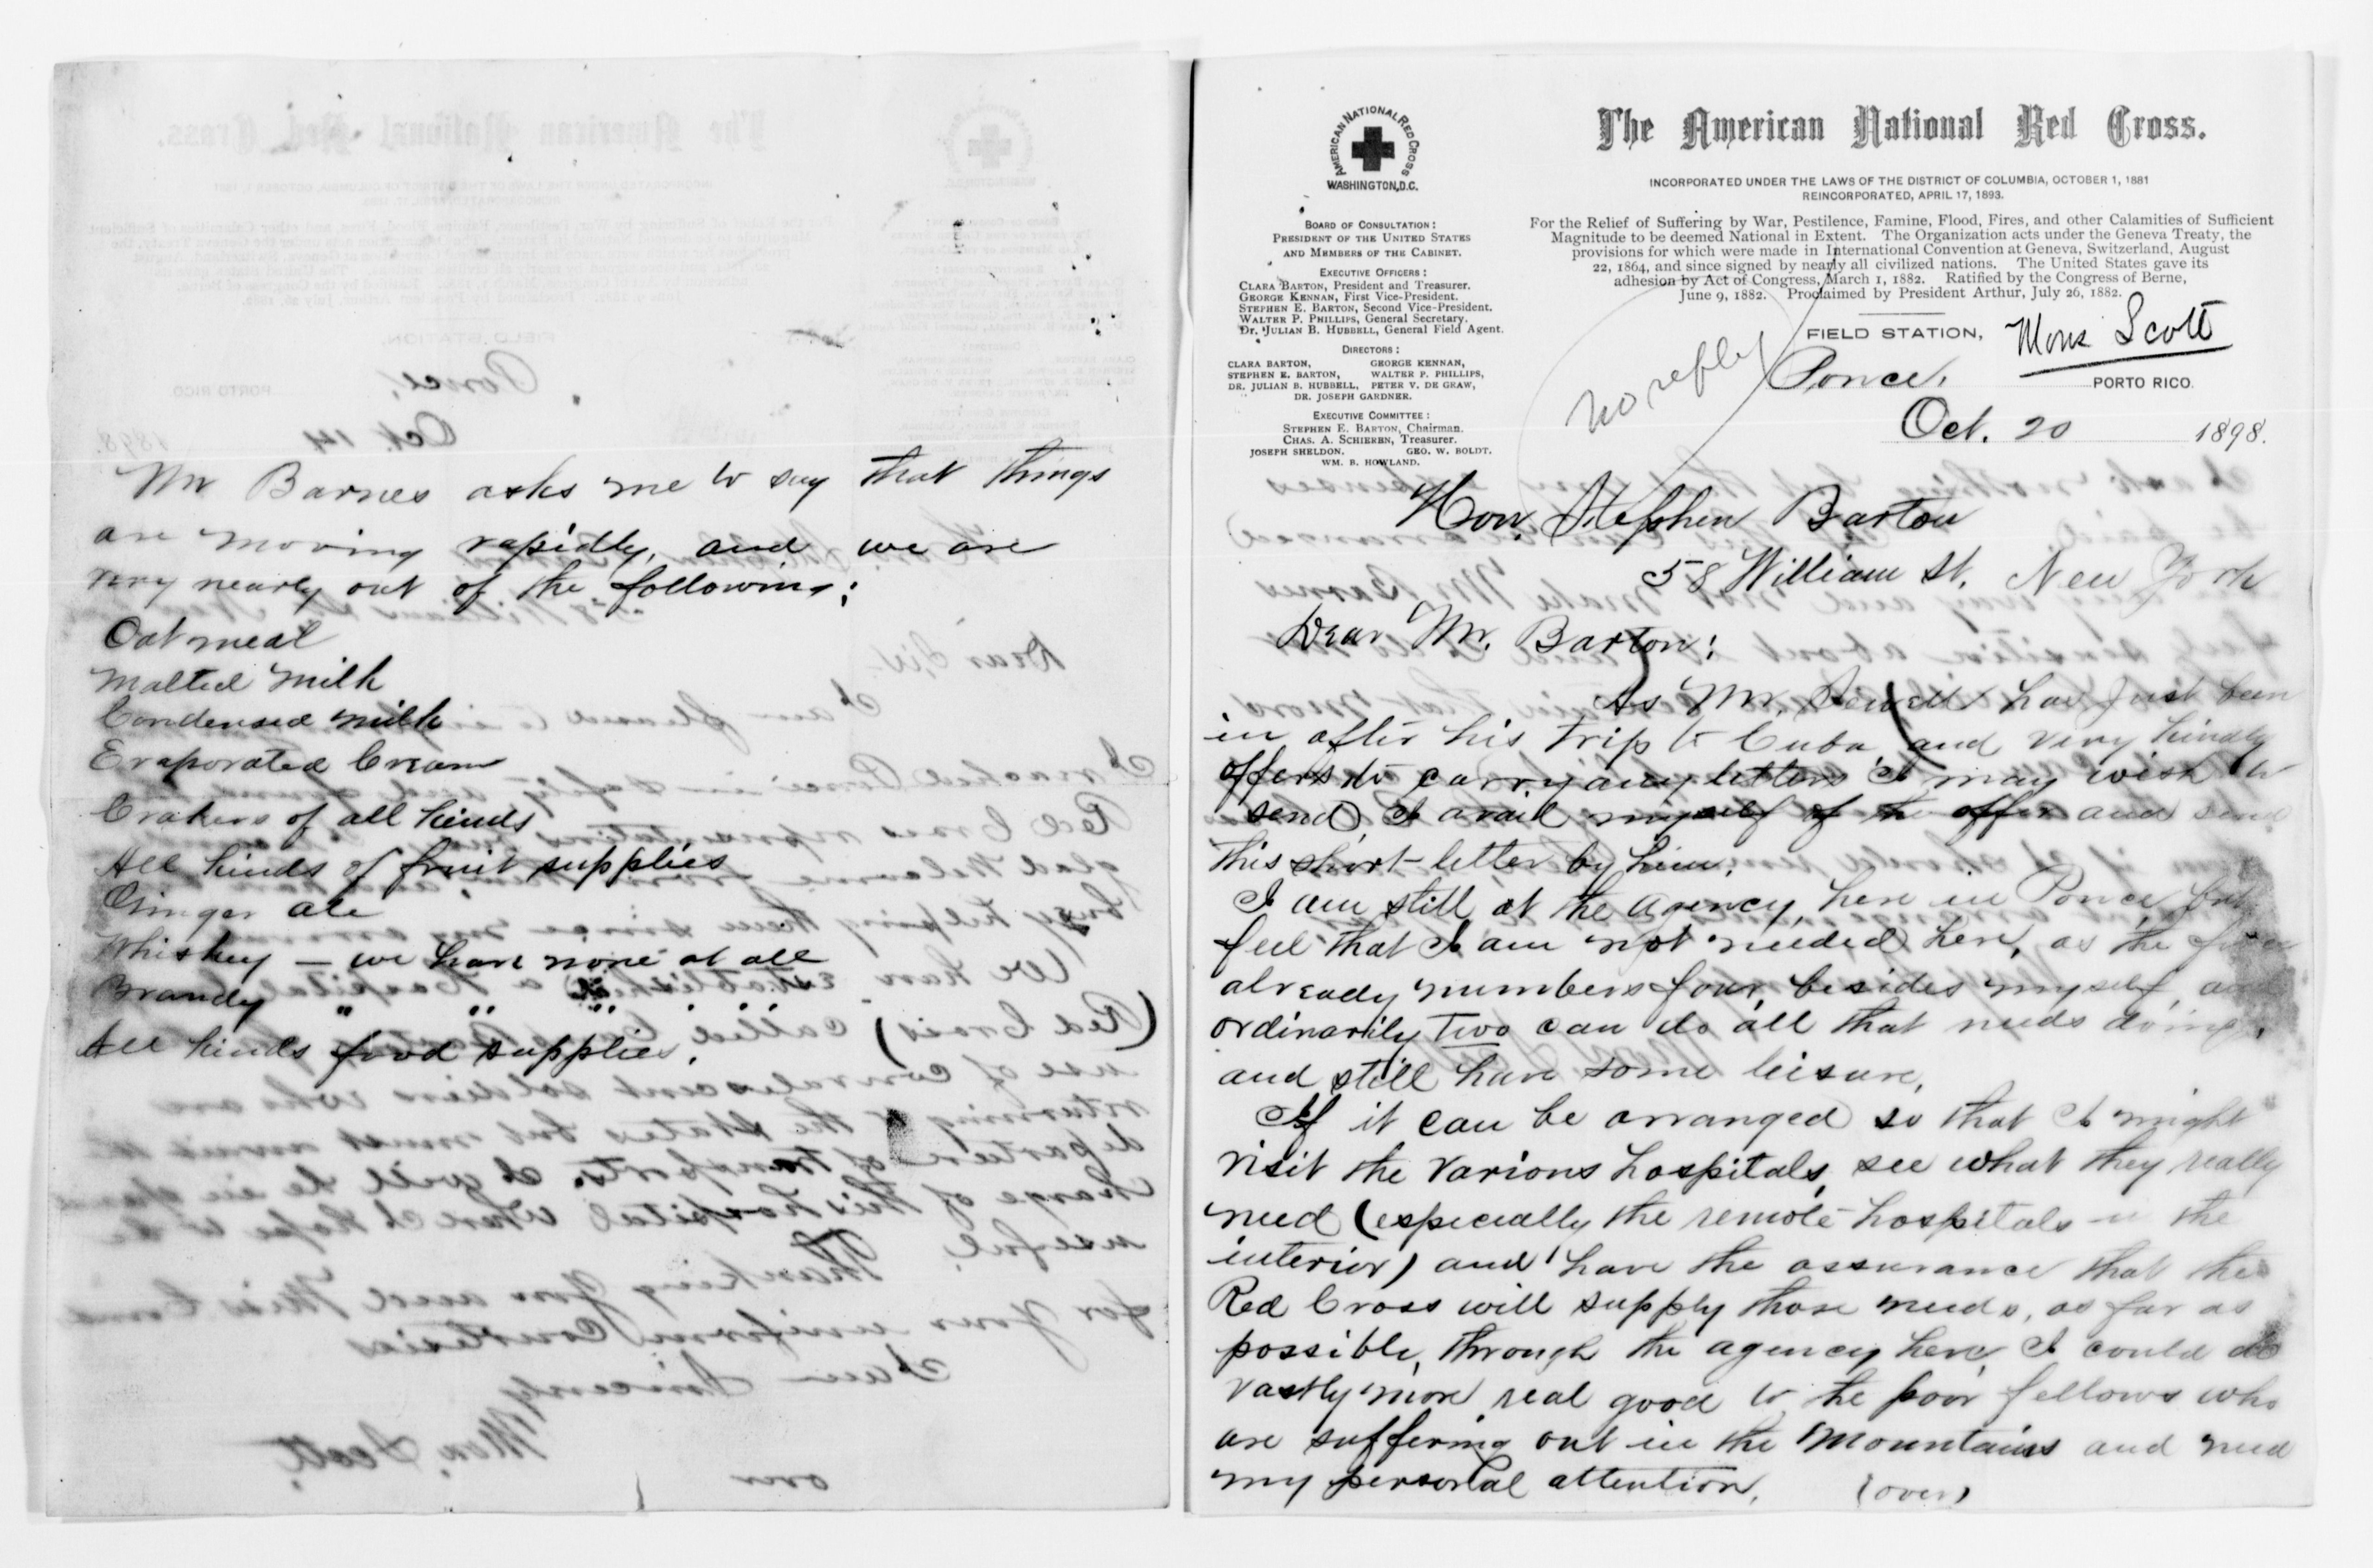 Mr Barnes asks me to say that things
are moving rapidly, and we are
very nearly out of the following:
Oatmeal
Malted Milk
Condensed milk
Evaporated Cream
Crakers of all kinds
All kinds of fruit supplies
Ginger ale
Whiskey — we have none at all
Brandy " " " " "
All kinds food supplies.
AMERICAN NATIONAL RED CROSS
WASHINGTON, D.C.
BOARD OF CONSULTATION:
PRESIDENT OF THE UNITED STATES
AND MEMBERS OF THE CABINET.
EXECUTIVE OFFICERS:
CLARA BARTON, President and Treasurer.
GEORGE KENNAN, First Vice-President.
STEPHEN E. BARTON, Second Vice-President.
WALTER P. PHILLIPS, General Secretary.
Dr. JULIAN B. HUBBELL, General Field Agent.
DIRECTORS:
CLARA BARTON, GEORGE KENNAN,
STEPHEN E. BARTON, WALTER P. PHILLIPS,
DR. JULIAN B. HUBBELL, PETER V. DE GRAW,
DR. JOSEPH GARDNER.
EXECUTIVE COMMITTEE:
STEPHEN E. BARTON, Chairman.
CHAS. A. SCHIEREN, Treasurer.
JOSEPH SHELDON. GEO. W. BOLDT.
WM. B. HOWLAND.
The American National Red Cross.
INCORPORATED UNDER THE LAWS OF THE DISTRICT OF COLUMBIA, OCTOBER 1, 1881
REINCORPORATED, APRIL 17, 1893.
For the Relief of Suffering by War, Pestilence, Famine, Flood, Fires, and other Calamities of Sufficient
Magnitude to be deemed National in Extent. The Organization acts under the Geneva Treaty, the
provisions for which were made in International Convention at Geneva, Switzerland, August
22, 1864, and since signed by nearly all civilized nations. The United States gave its
adhesion by Act of Congress, March 1, 1882. Ratified by the Congress of Berne,
June 9, 1882. Proclaimed by President Arthur, July 26, 1882.
FIELD STATION, Mons Scott
no reply
Ponce, PORTO RICO.
Oct. 20 1898.
Hon. Stephen Barton
58 William St. New York
Dear Mr. Barton:
As Mr. Sewell has just been
in after his trip to Cuba and very kindly
offers to carry any letters I may wish to
send, I avail myself of the offer and send
this short letter by him.
I am still at the agency, here in Ponce but
feel that I am not needed here, as the force
already numbers four, besides myself, and
ordinarily two can do all that needs doing,
and still have some leisure.
If it can be arranged so that I might
visit the various hospitals, see what they really
need (especially the remote hospitals in the
interior) and have the assurance that the
Red Cross will supply those needs, as far as
possible, through the agency here, I could do
vastly more real good to the poor fellows who
are suffering out in the mountains and need
my personal attention. (over)